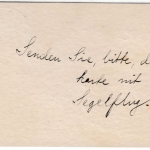 Senden Sie, bitte, d
karte mit
Segelflug.